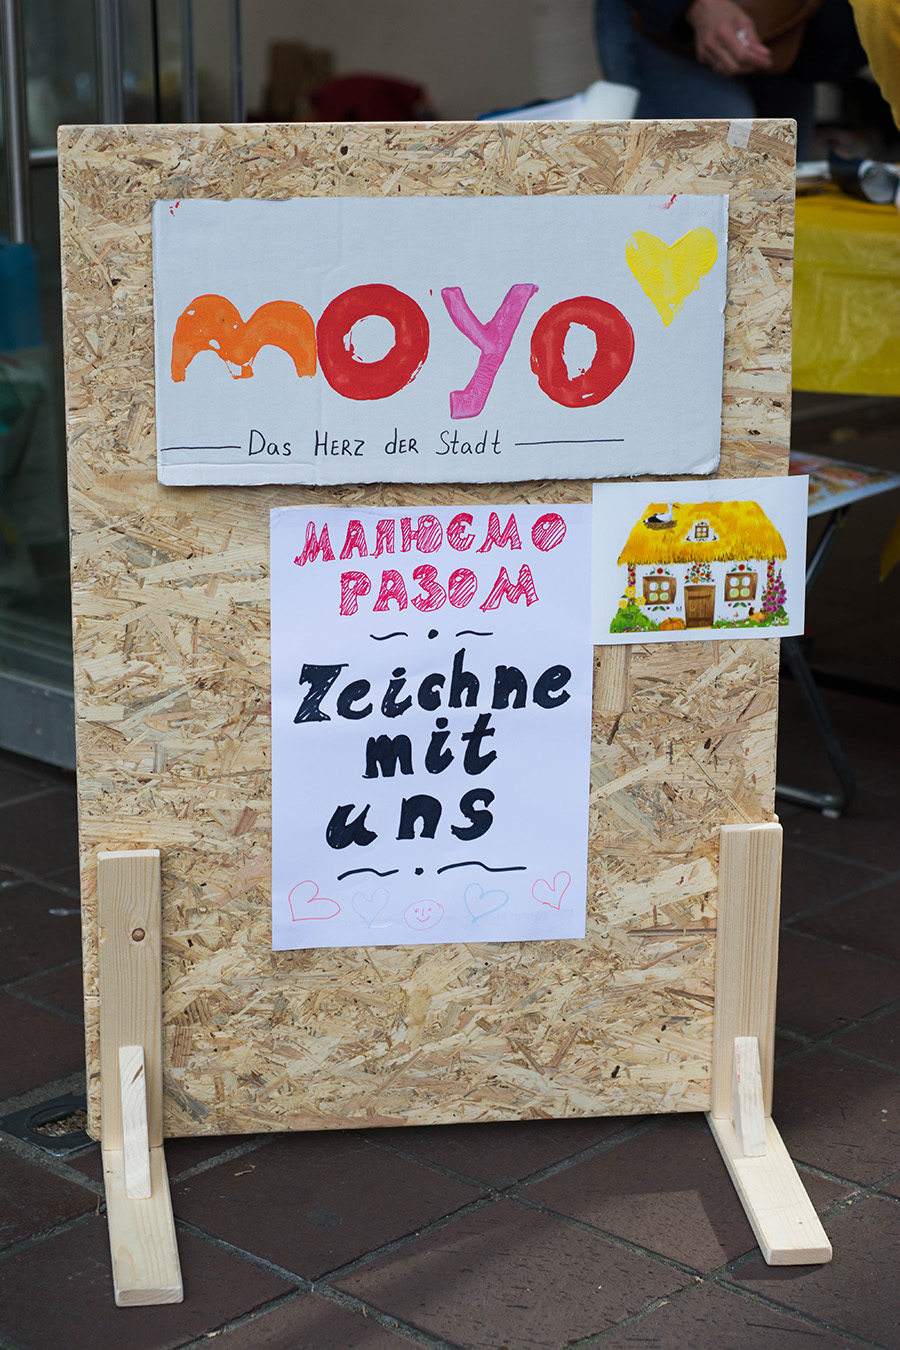 moyo
Das HERZ DER Stadt
МАЛЮЄМО
РАЗОМ
Zeichne
mit
uns